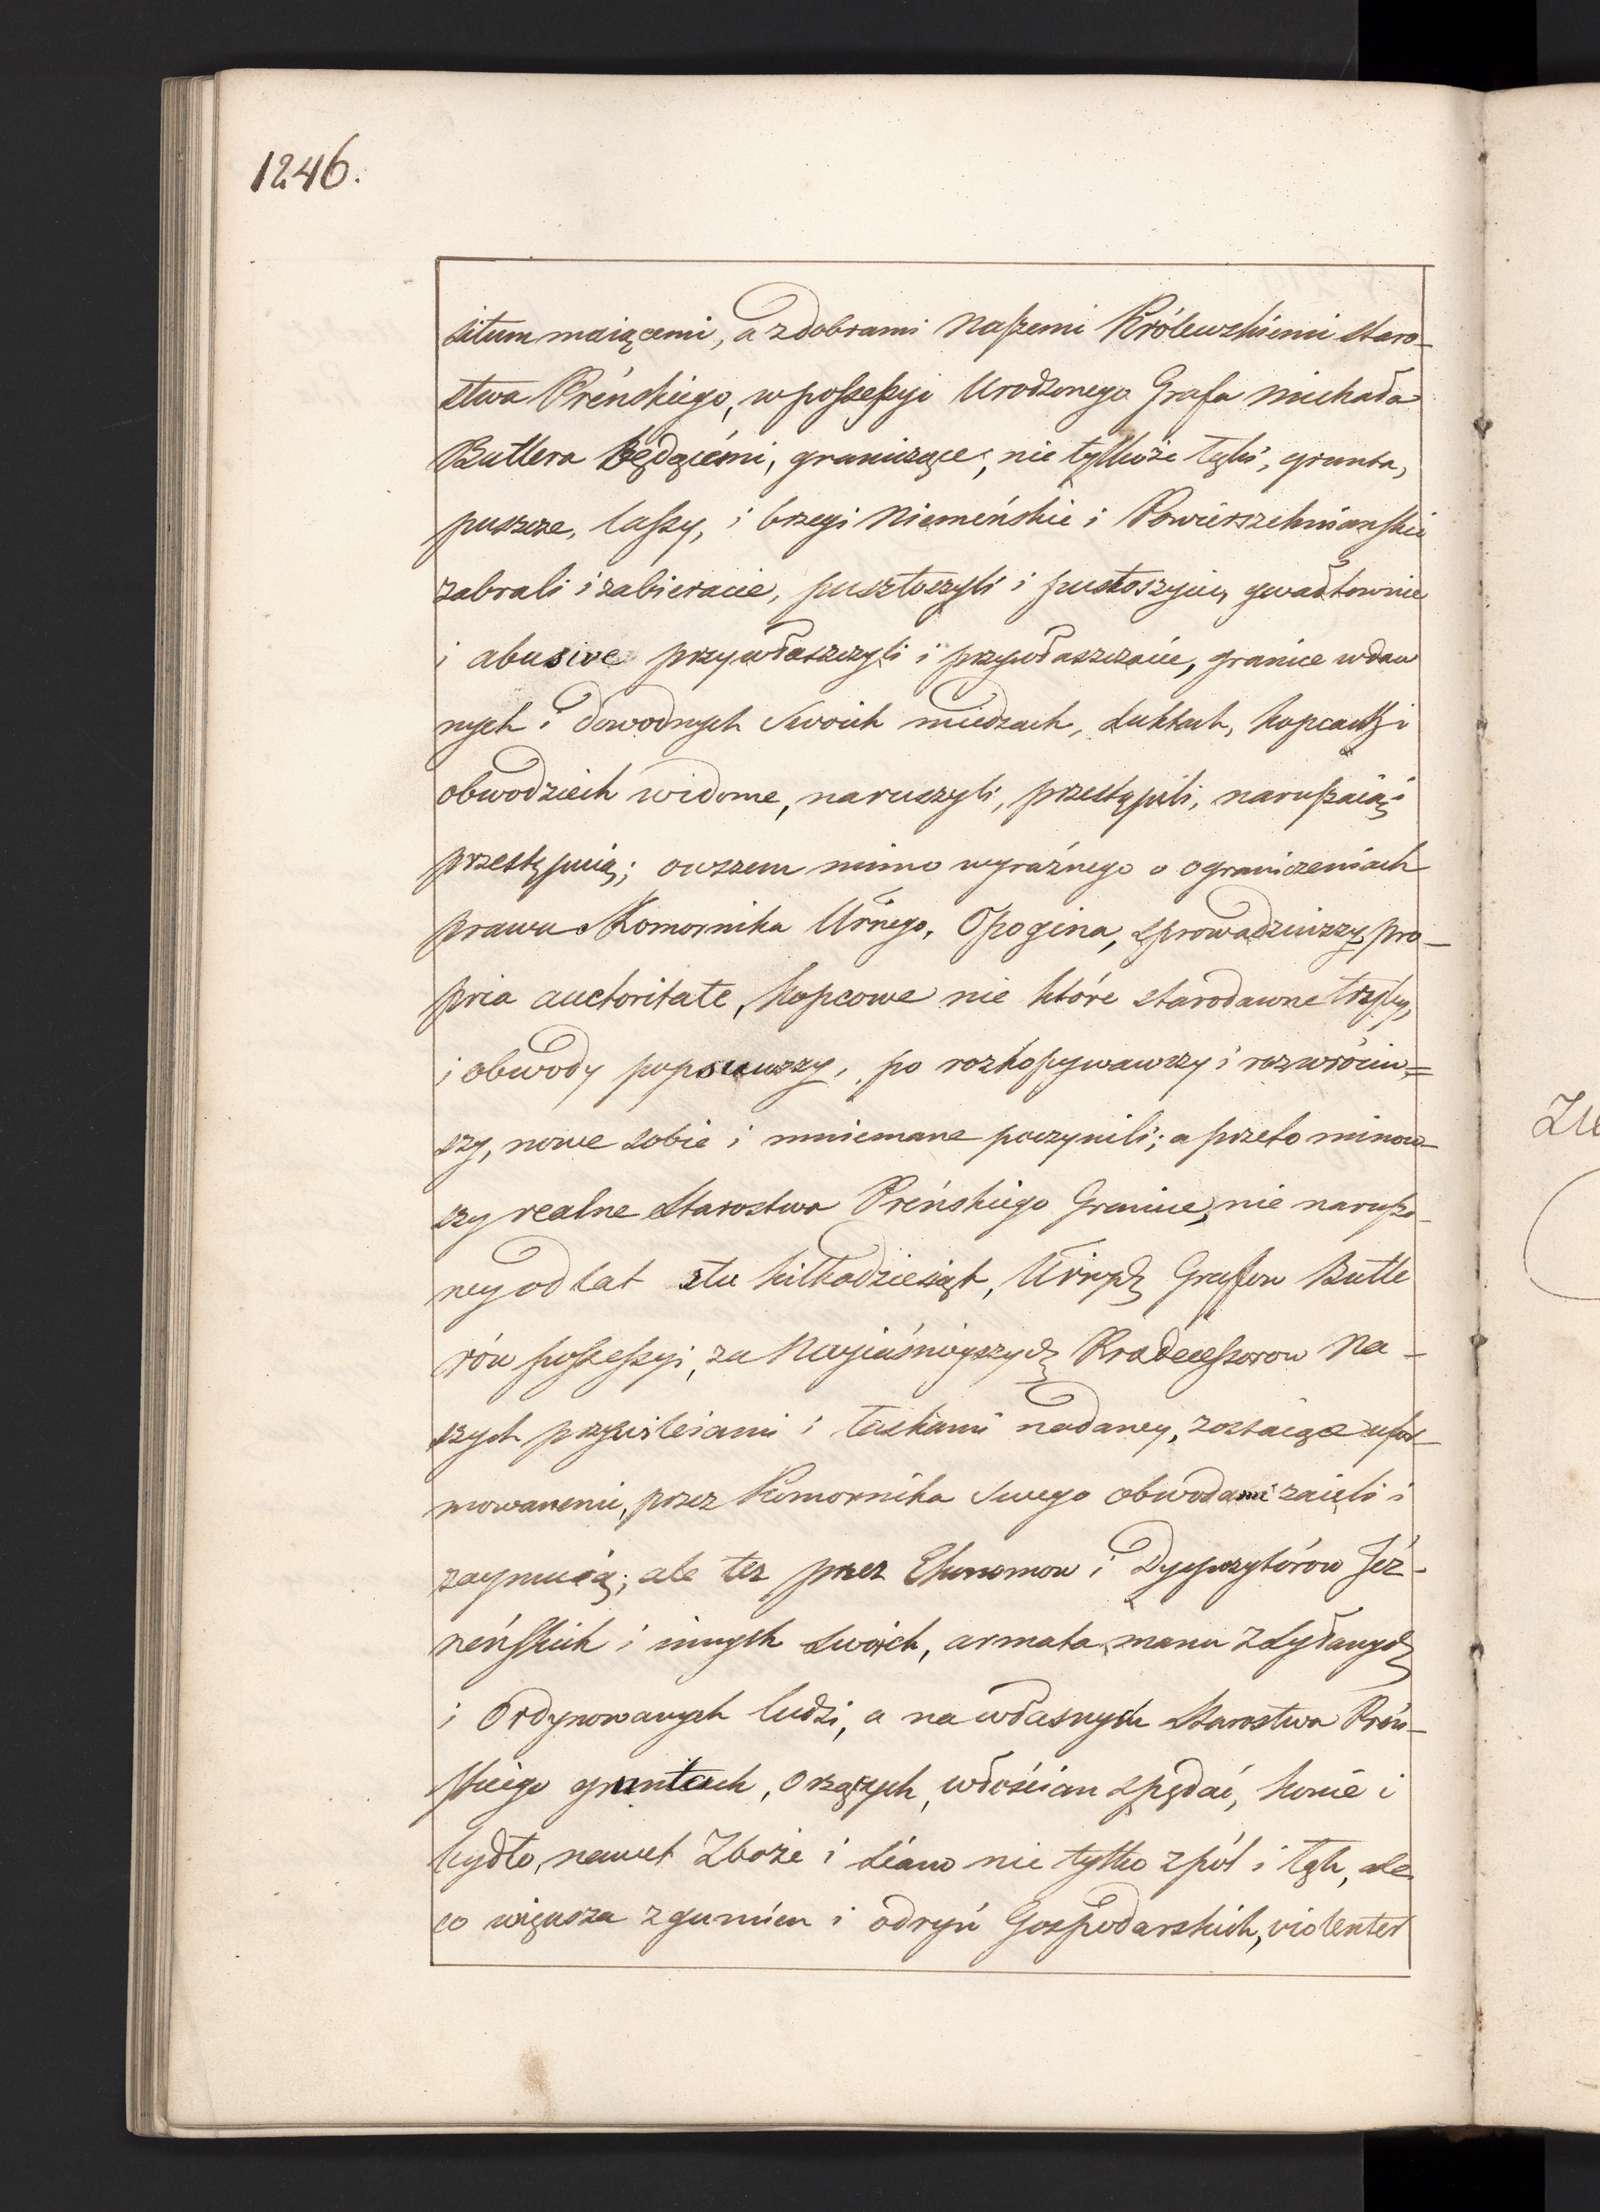 1246.
situm maiącemi, a z dobrami Naszemi Królewzkiemi staro-
stwa Preńskiego, w possessyi Urodzonego Grafa Michała
Buttlera będącémi, graniczące, nie tylko że łąki, grunta,
puszcze, lassy, i brzegi Niemeńskie i Powierszchniańskie
zabrali i zabieracie, pusztoszyli i pustoszycie, gwałtownie
i abusive przywłaszczyli i przywłaszczacie, granice w daw
nych i dowodnych swoich miedzach, dukktach, kopcach i
obwodziech widome, naruszyli, przestąpili, naruszaią i
przestępuią; owszem mimo wyraźnego o ograniczeniach
prawa Komornika Urńego, Opogina, sprowadziwszy pro-
pria auctoritate, kopcowe nie które starodawne trzypy,
i obwody popsuwszy, po rozkopywawszy i rozwróciw=
szy, nowe sobie i mniemane poczynili; a przeto minow-
szy realne Starostwa Preńskiego Granice, nie narusza-
ney od lat stu kilkadziesiąt, Urńych Grafow Butle
rów possessyi, za Nayiaśnieyszych Pradecessorow Na-
szych przywileiami i łaskami nadaney, zostaiące ufor-
mowanemi, przez Komornika swego obwodami zaieli i
zaymuią; ale tez przez Ekonomow i Dyspozytórow Jéz-
neńskich i innych swoich, armata manu zsyłanych
i Ordynowanych ludzi, a na własnych Starostwa Preń-
skiego gruntach, orzących, włościan spędać, konie i
bydło, nawet Zboże i siano nie tylko z pól i łąk, ale
co większa z gumien i odryń Gospodarskich, violenter
Zu